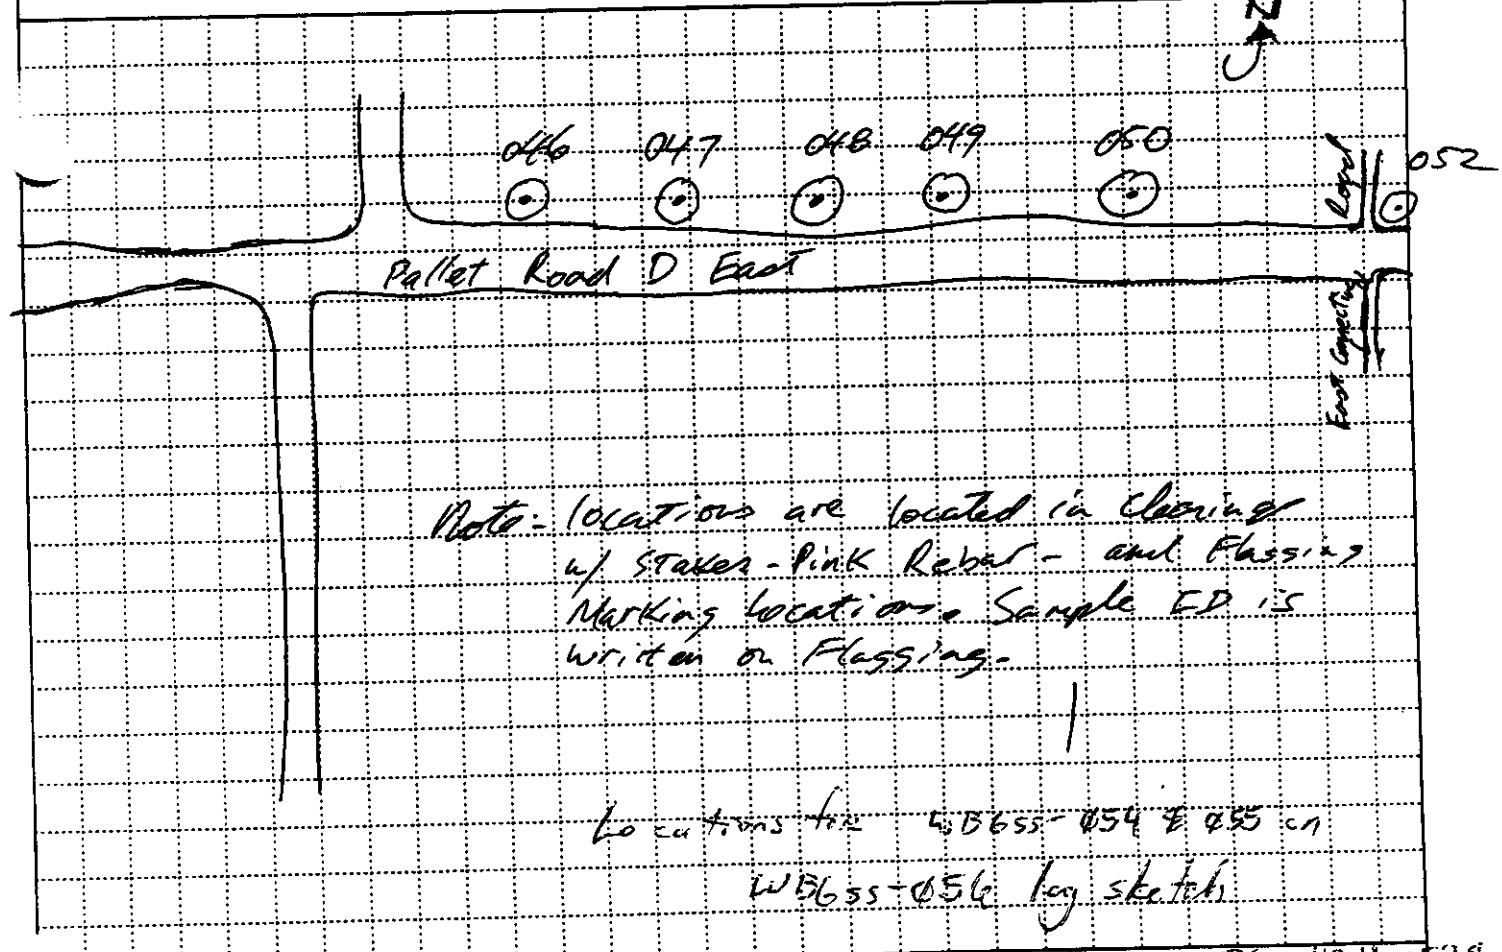 N
046 047 048 049 050
052
Road
Pallet Road D East
East Connecting
Note: locations are located in Clearings
w/ Stakes - Pink Rebar - and Flagging
Marking Locations. Sample ID is
written on Flagging.
Locations for WB6ss-054 & 055 on
WB6ss-056 log sketch